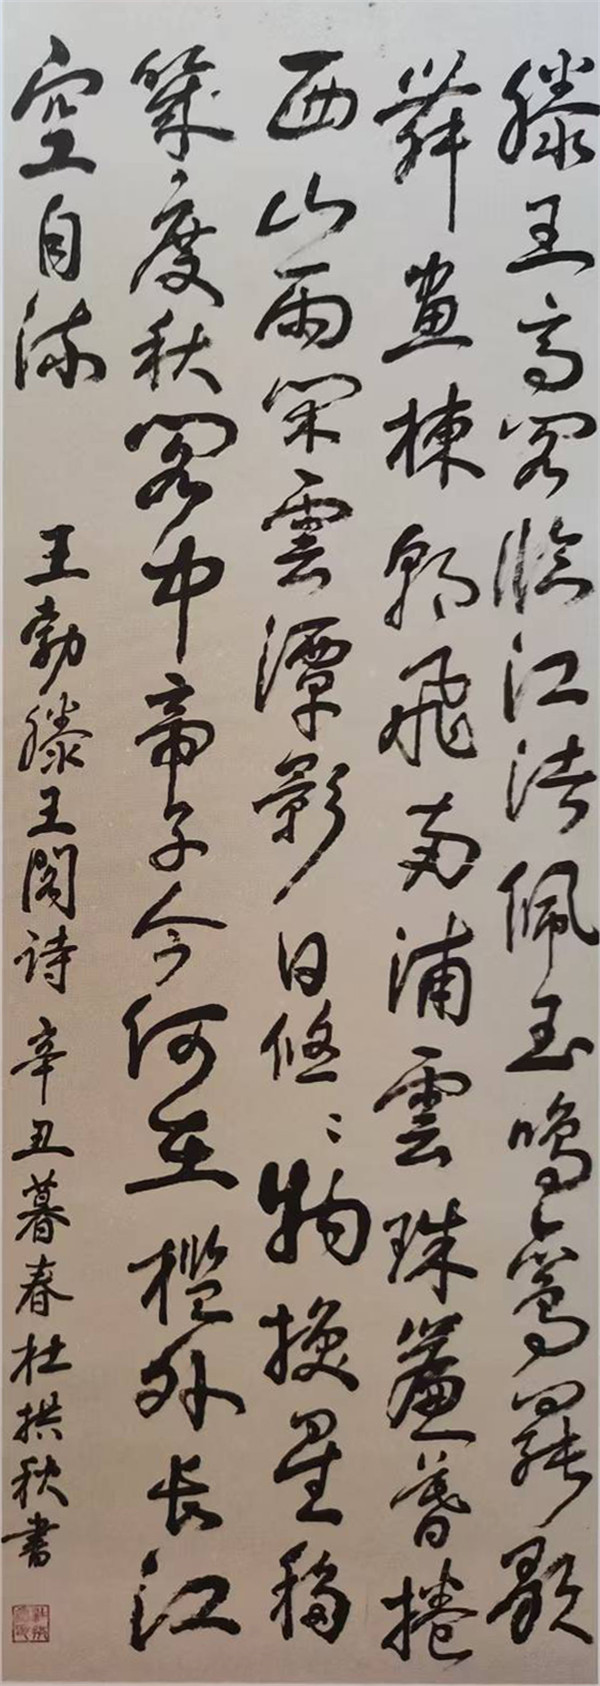 滕王高阁临江渚佩玉鳴鸞罷歌
舞畫棟朝飛南浦雲珠簾暮捲
西山雨閑雲潭影日悠〻物换星移
幾度秋阁中帝子今何在檻外長江
空自流
王勃滕王閣诗辛丑暮春杜拱秋書